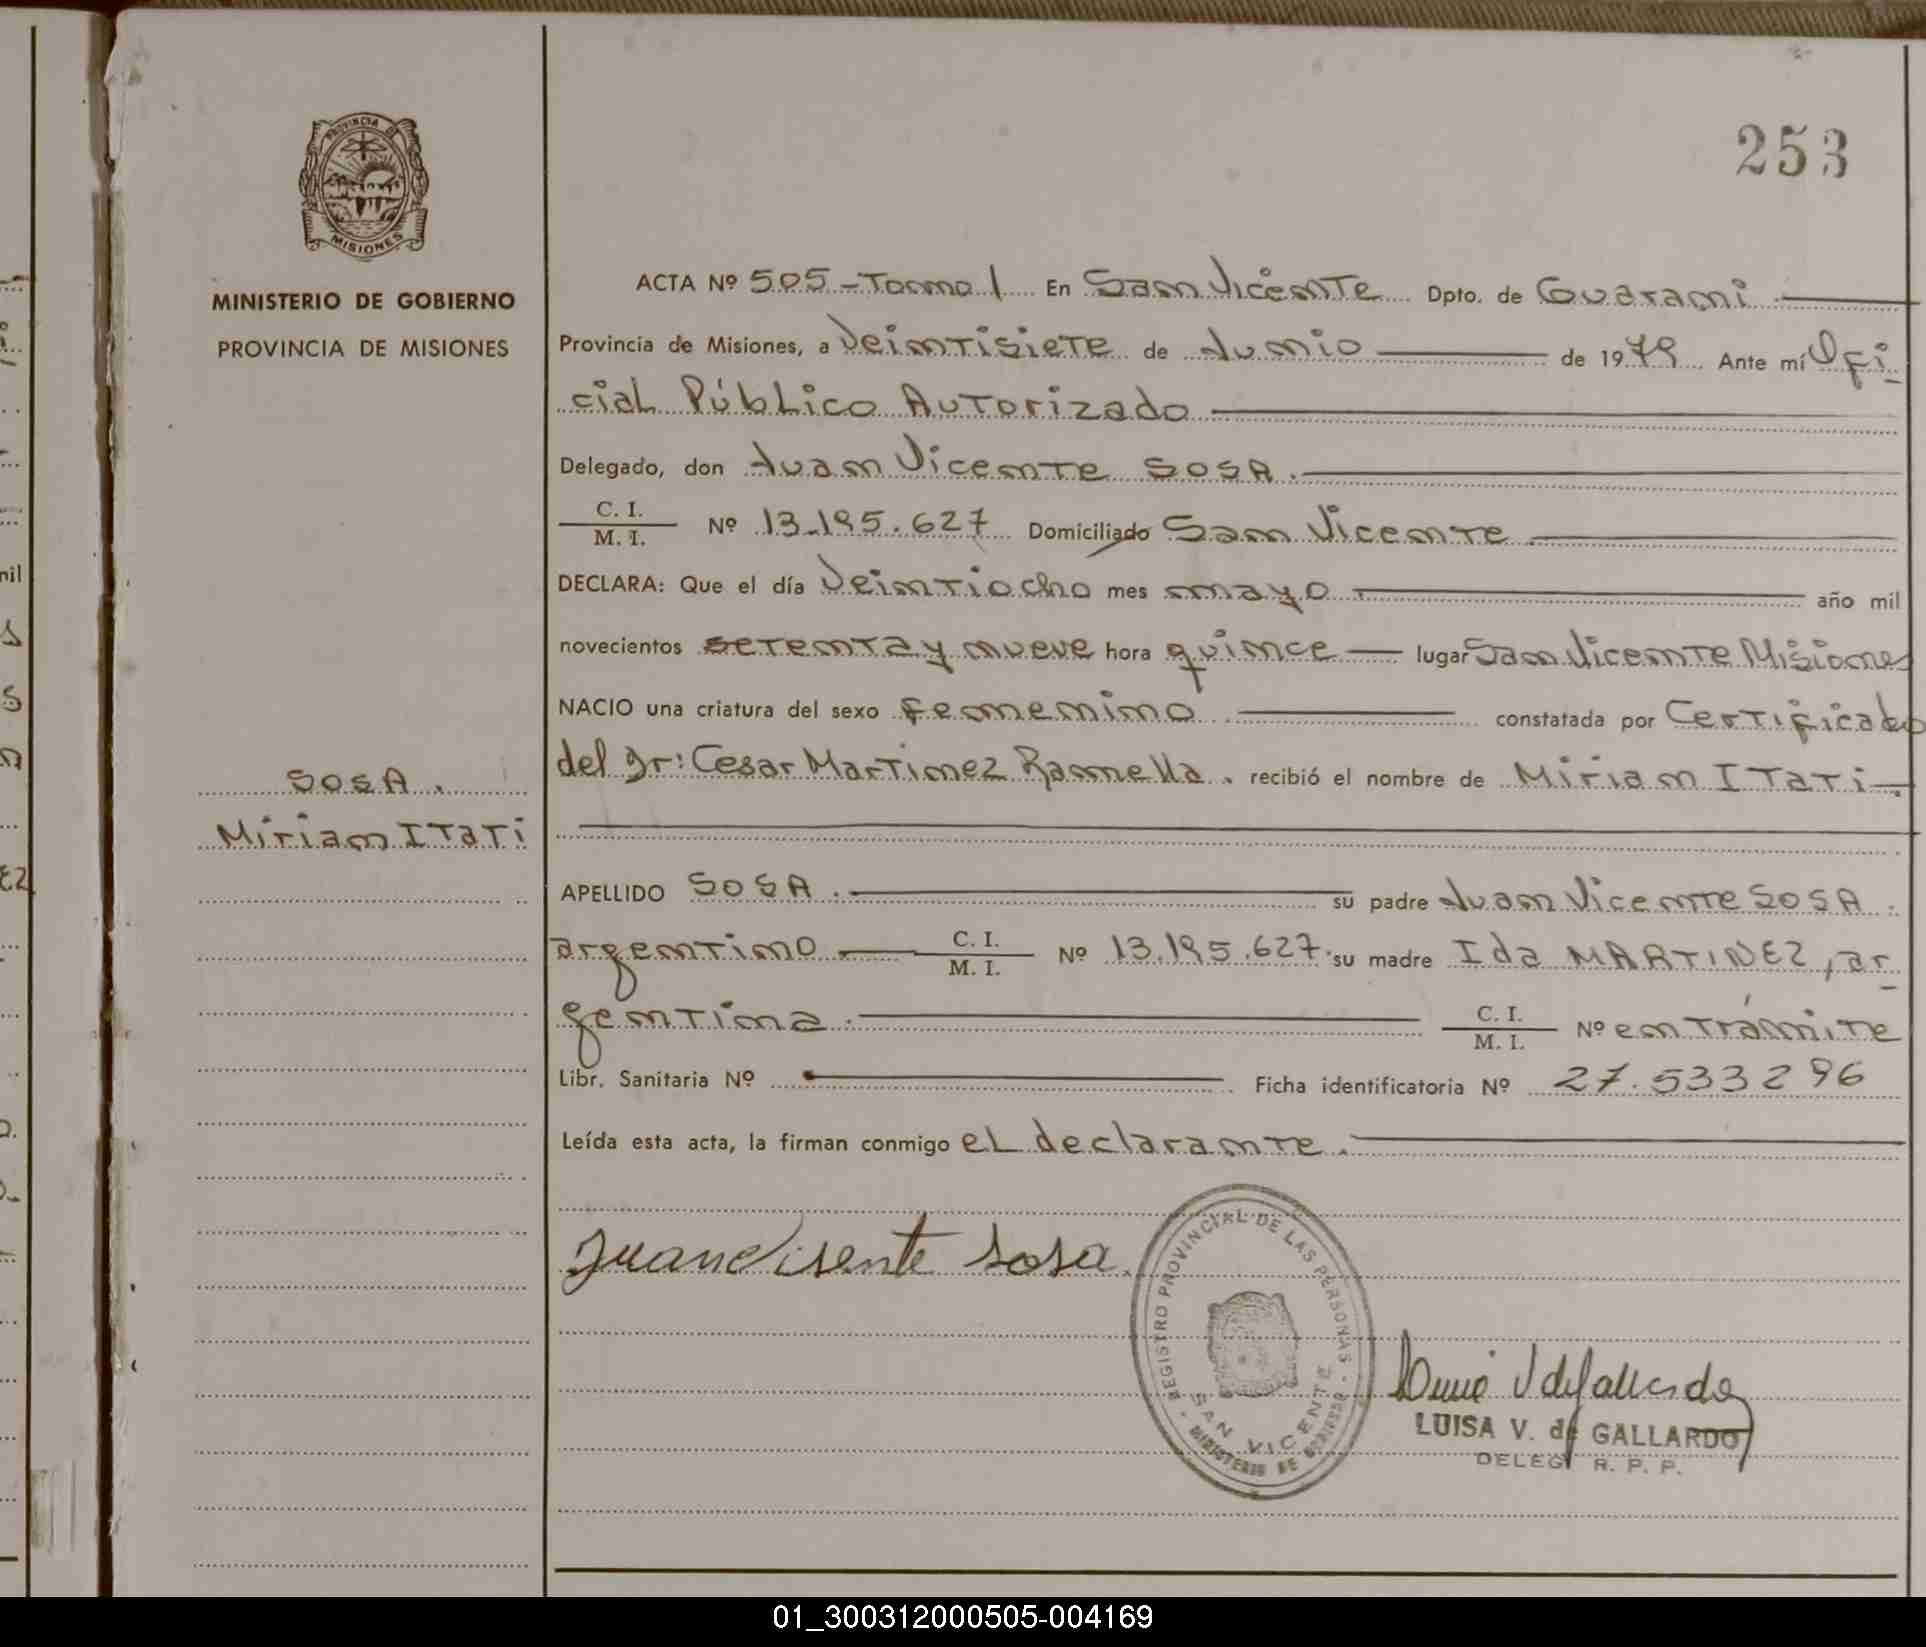 253
PROVINCIA DE
MISIONES
MINISTERIO DE GOBIERNO
PROVINCIA DE MISIONES
SOSA.
Miriam Itati
ACTA Nº 505 - Tomo I En San Vicente Dpto. de Guarani
Provincia de Misiones, a Veintisiete de Junio de 1979 Ante mí Ofi
cial Público Autorizado
Delegado, don Juan Vicente SOSA.
C. I.
M. I. Nº 13.195.627 Domiciliado San Vicente
DECLARA: Que el día Veintiocho mes mayo año mil
novecientos setenta y nueve hora quince lugar San Vicente Misiones
NACIO una criatura del sexo femenino constatada por Certificado
del Dr: Cesar Martinez Ramella. recibió el nombre de Miriam Itati
APELLIDO SOSA. su padre Juan Vicente SOSA.
argentino C. I.
M. I. Nº 13.195.627. su madre Ida MARTINEZ, ar
gentina. C. I.
M. I. Nº en trámite
Libr. Sanitaria Nº Ficha identificatoria Nº 27.533296
Leída esta acta, la firman conmigo el declarante.
Juan Visente sosa.
REGISTRO PROVINCIAL DE LAS PERSONAS
SAN VICENTE
MINISTERIO DE GOBIERNO
LUISA V. de GALLARDO
DELEG. R. P. P.
01_300312000505-004169